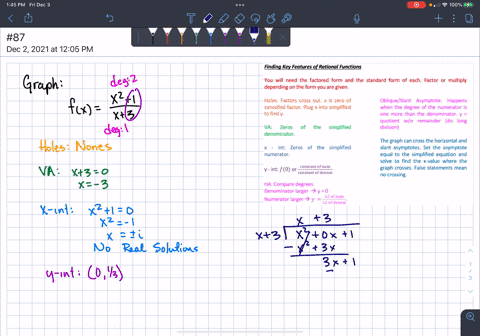 1:45 PM Fri Dec 3
#87
Dec 2, 2021 at 12:05 PM
Graph:
deg:2
f(x) = x²+1 / x+3
deg:1
Holes: Nones
VA: x+3=0
x=-3
x-int: x²+1=0
x²=-1
x = ±i
No Real Solutions
y-int: (0, 1/3)
Finding Key Features of Rational Functions
You will need the factored form and the standard form of each. Factor or multiply
depending on the form you are given
Holes: Factors cross out. x is zero of
cancelled factor. Plug x into simplified
to find y.
VA: Zeros of the simplified
denominator.
x - int: Zeros of the simplified
numerator.
y - int: f(0) or constant of num / constant of denom
HA: Compare degrees:
Denominator larger → y = 0
Numerator larger → y = LC of num / LC of denom
Oblique/Slant Asymptote: Happens
when the degree of the numerator is
one more than the denominator. y =
quotient w/o remainder (do long
division)
The graph can cross the horizontal and
slant asymptotes. Set the asymptote
equal to the simplified equation and
solve to find the x value where the
graph crosses. False statements mean
no-crossing.
x + 3
x+3 x² + 0x + 1
- x² + 3x
3x + 1